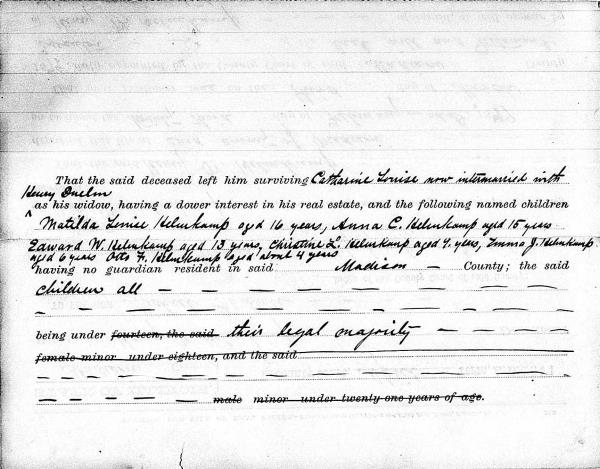 That the said deceased left him surviving Catharine Louise now intermarried with
Henry Duelm
as his widow, having a dower interest in his real estate, and the following named children
Matilda Louise Helmkamp aged 16 years, Anna C. Helmkamp aged 15 years
Edward W. Helmkamp aged 13 years, Christine L. Helmkamp aged 9 years, Emma J. Helmkamp
aged 6 years Otto F. Helmkamp aged about 4 years
having no guardian resident in said Madison County; the said
children all
being under fourteen, the said their legal majority
female minor under eighteen, and the said
male minor under twenty-one years of age.